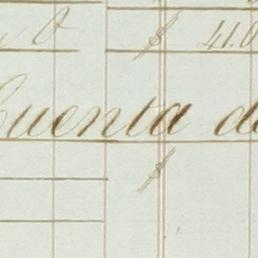 $ 41.0
Cuenta de
$